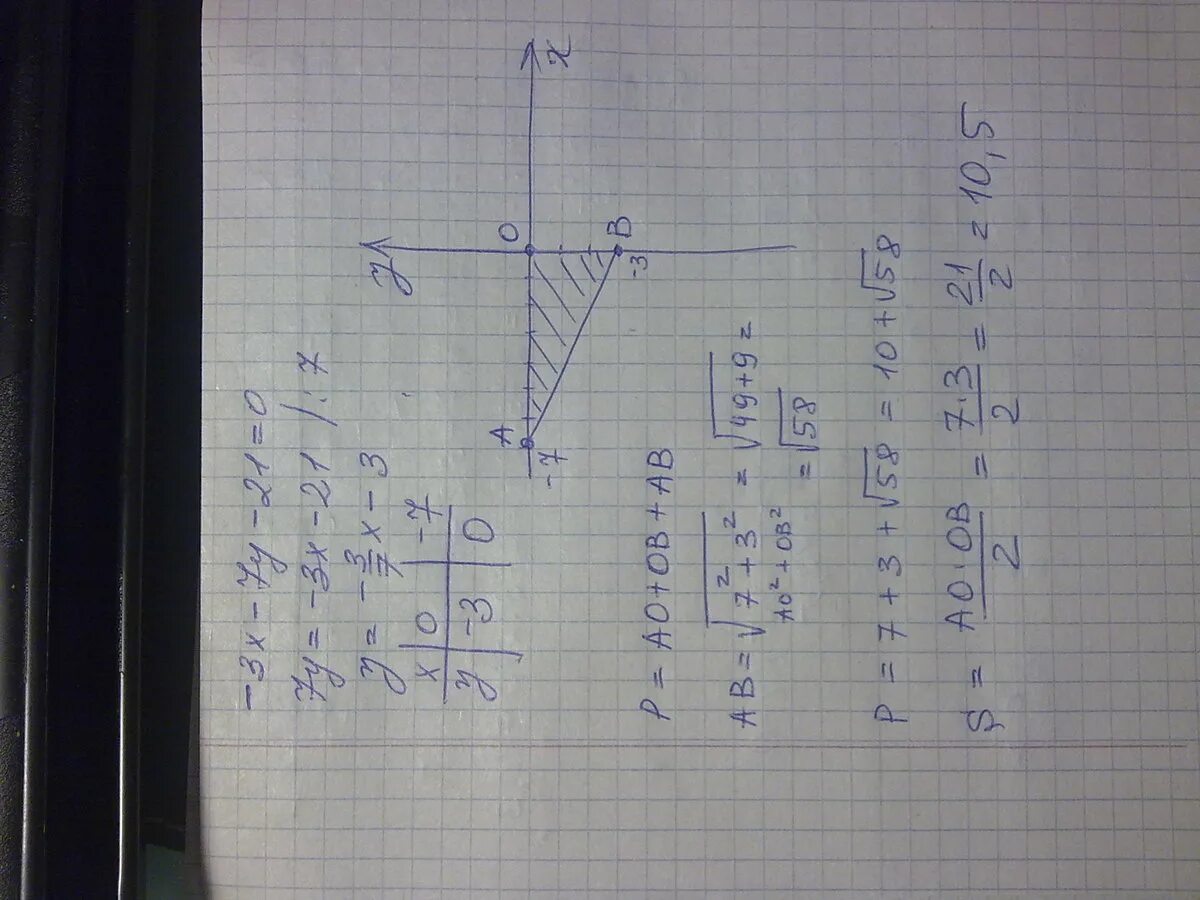 -3x - 7y - 21 = 0
7y = -3x - 21 /:7
y = -3/7 x - 3
x | 0 | -7
y | -3 | 0
y
x
O
A
-7
B
-3
P = AO + OB + AB
AB = √(7² + 3²) = √(49+9) =
AO² + OB²
= √58
P = 7 + 3 + √58 = 10 + √58
S = AO·OB/2 = 7·3/2 = 21/2 = 10,5